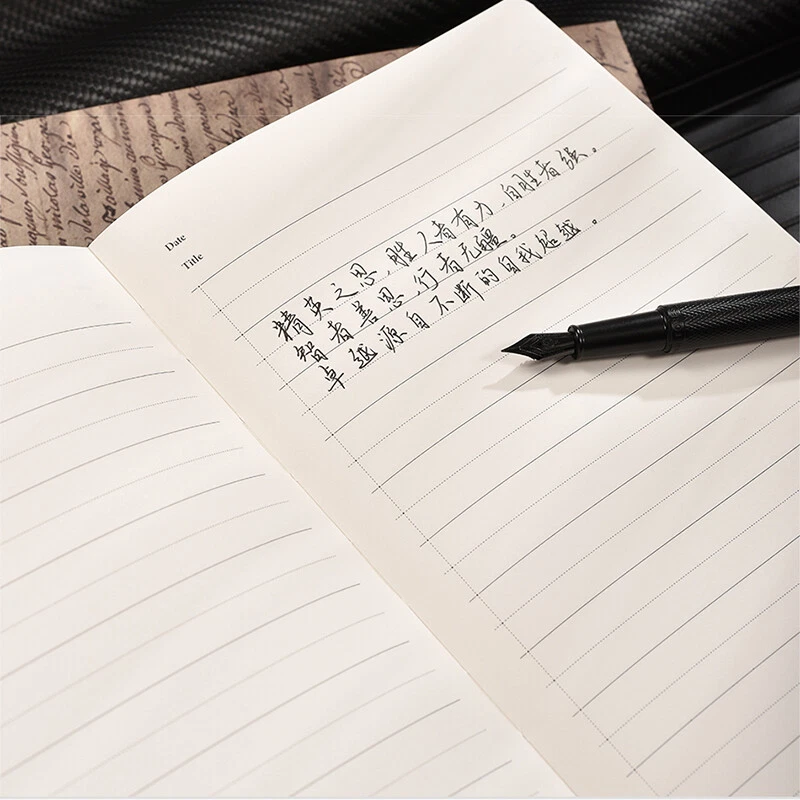 Date
Title
精英之思,胜人者有力,自胜者强。
智者善思,行者无疆。
卓越源自不断的自我超越。